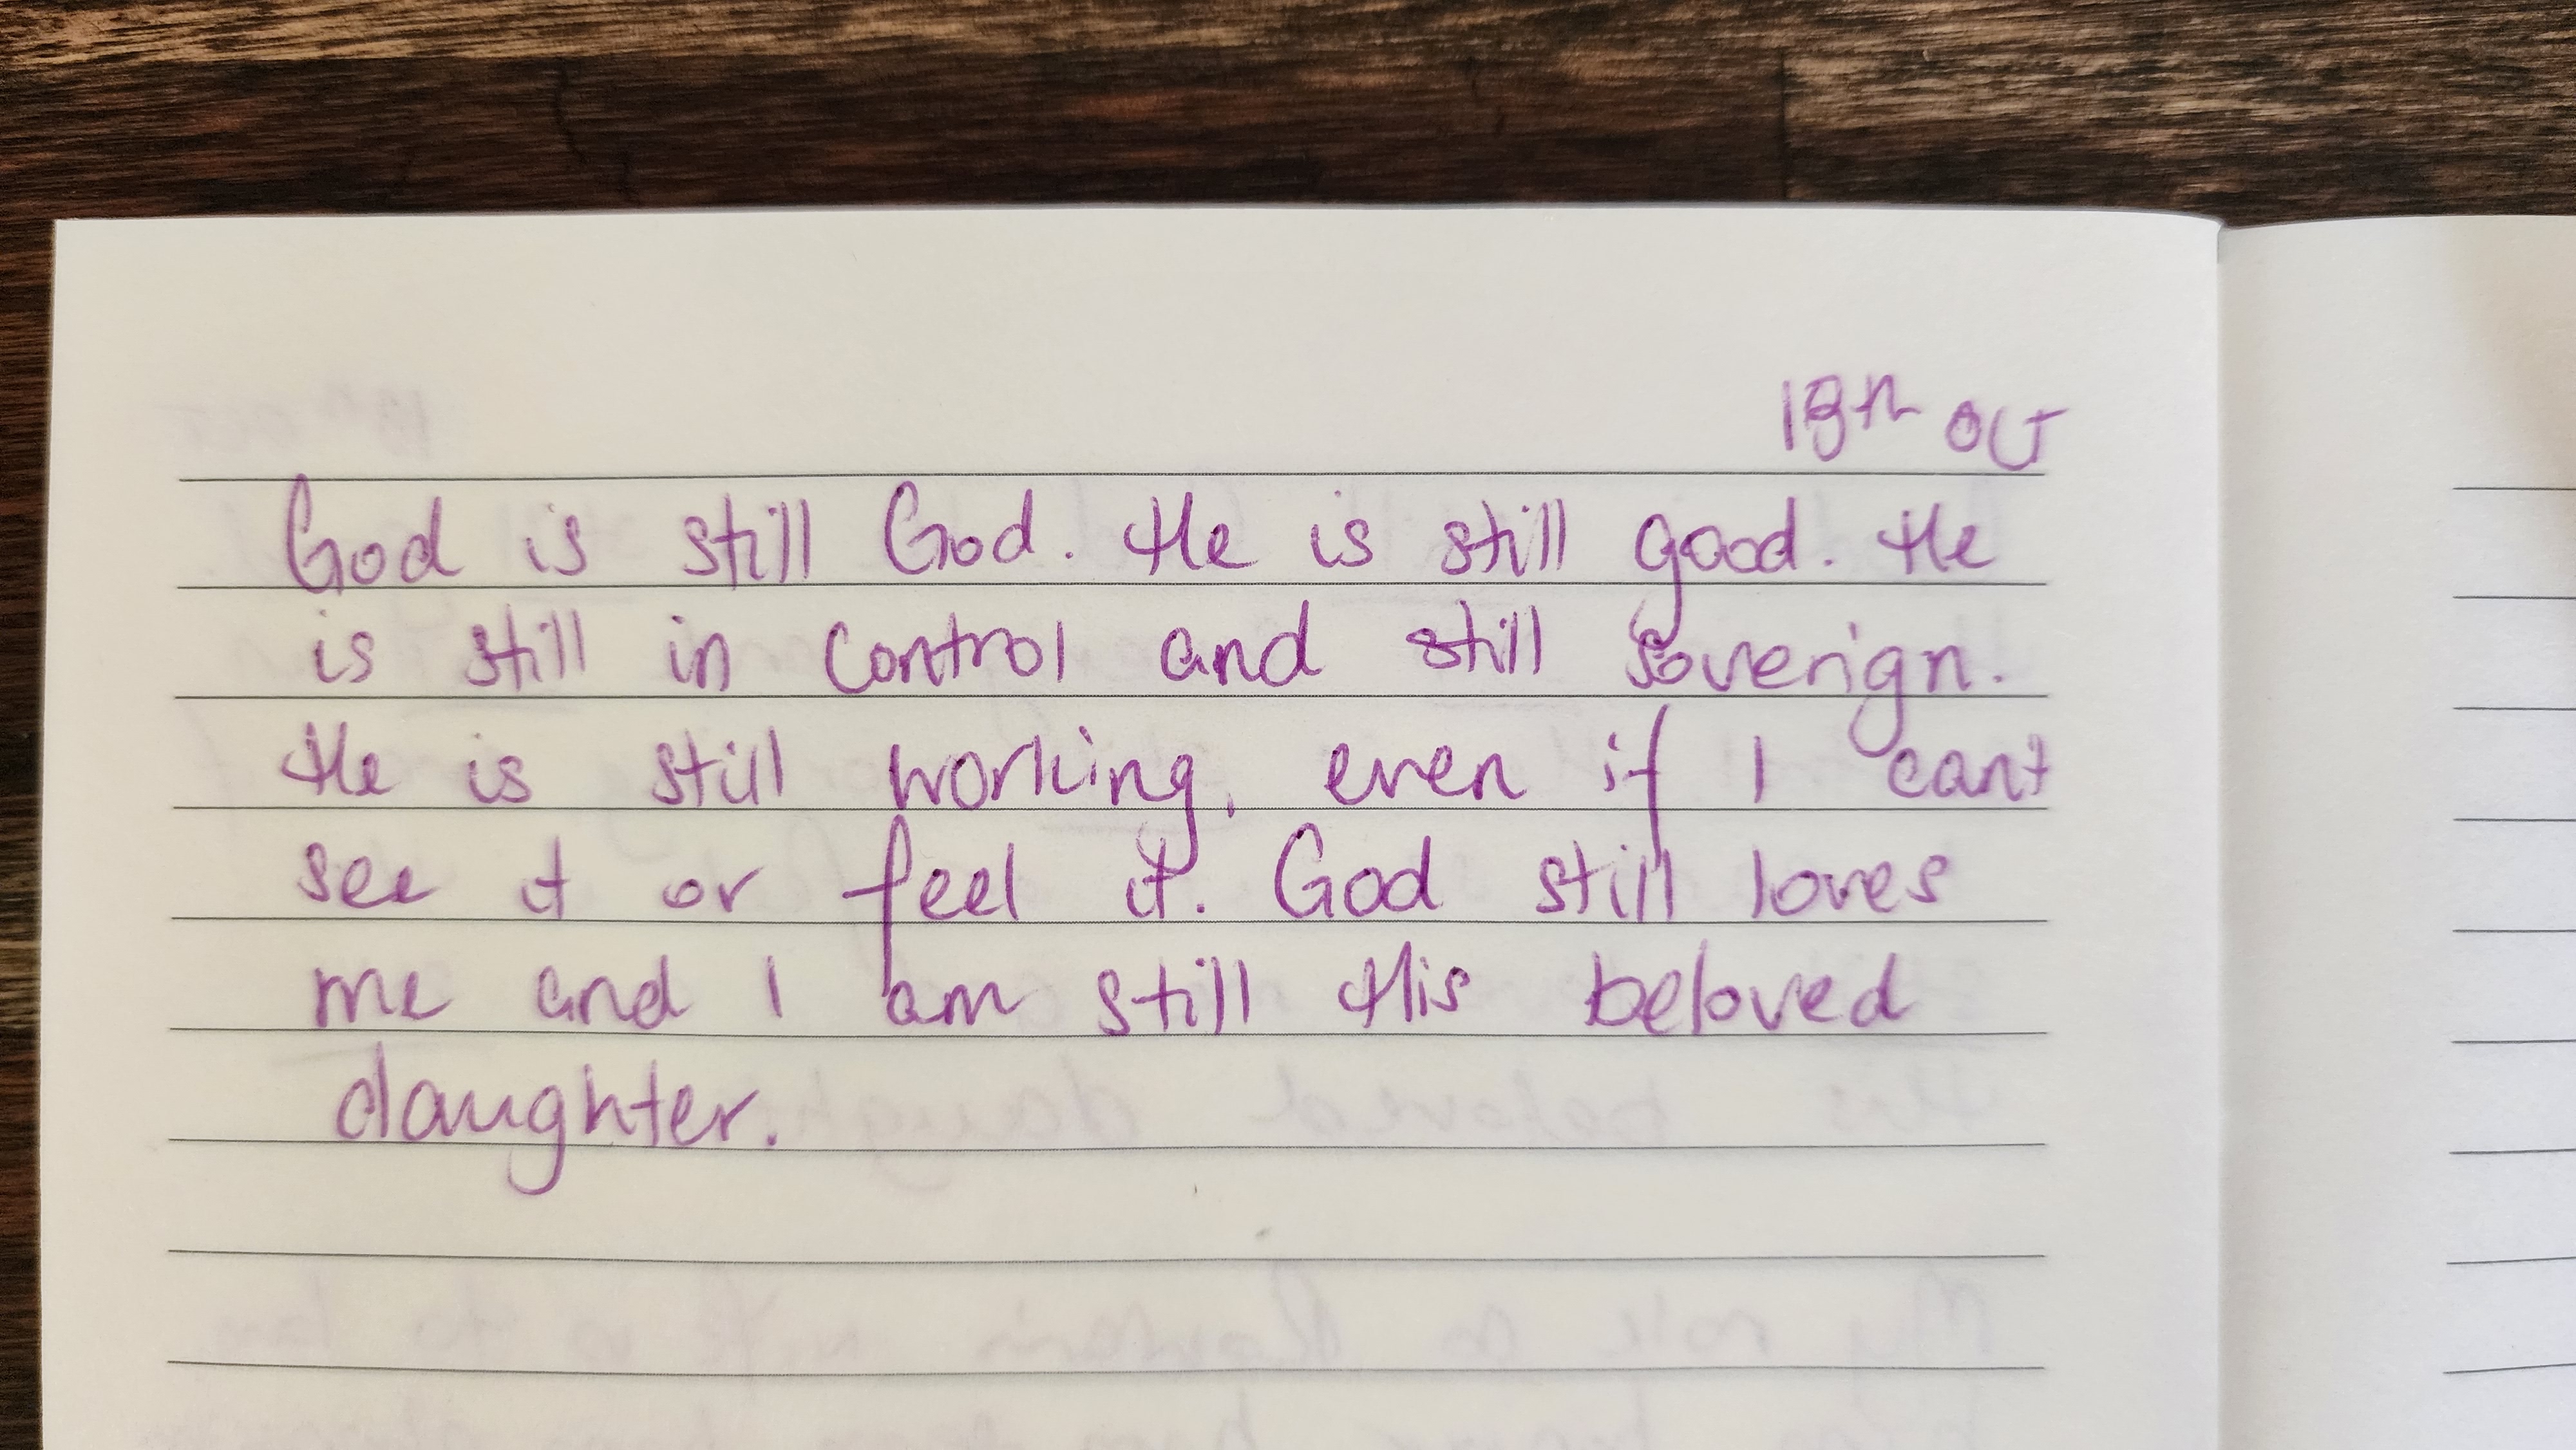 18th Oct
God is still God. He is still good. He
is still in control and still soverign.
He is still working, even if I can't
see it or feel it. God still loves
me and I am still His beloved
daughter.